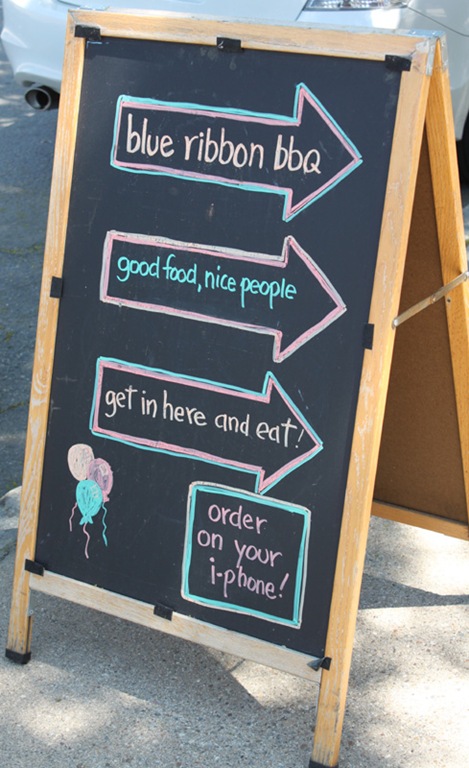 blue ribbon bbq
good food, nice people
get in here and eat!
order
on your
i-phone!